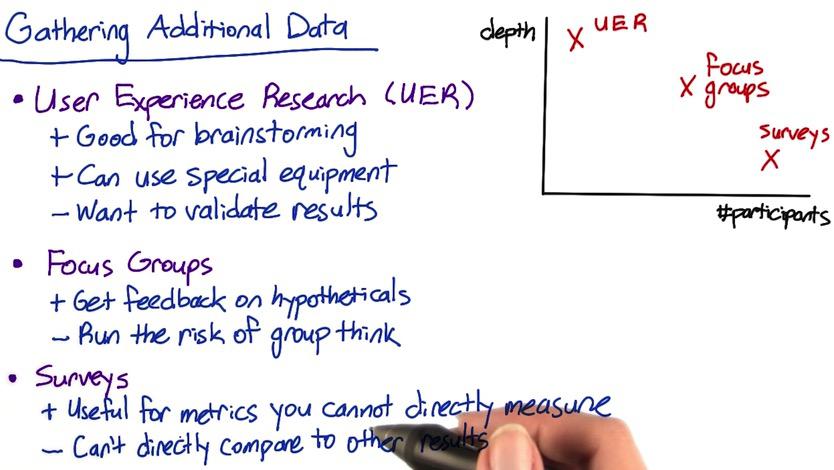 Gathering Additional Data
• User Experience Research (UER)
+ Good for brainstorming
+ Can use special equipment
- Want to validate results
• Focus Groups
+ Get feedback on hypotheticals
- Run the risk of group think
• Surveys
+ Useful for metrics you cannot directly measure
- Can't directly compare to other results
depth
X UER
X Focus
groups
surveys
X
#participants